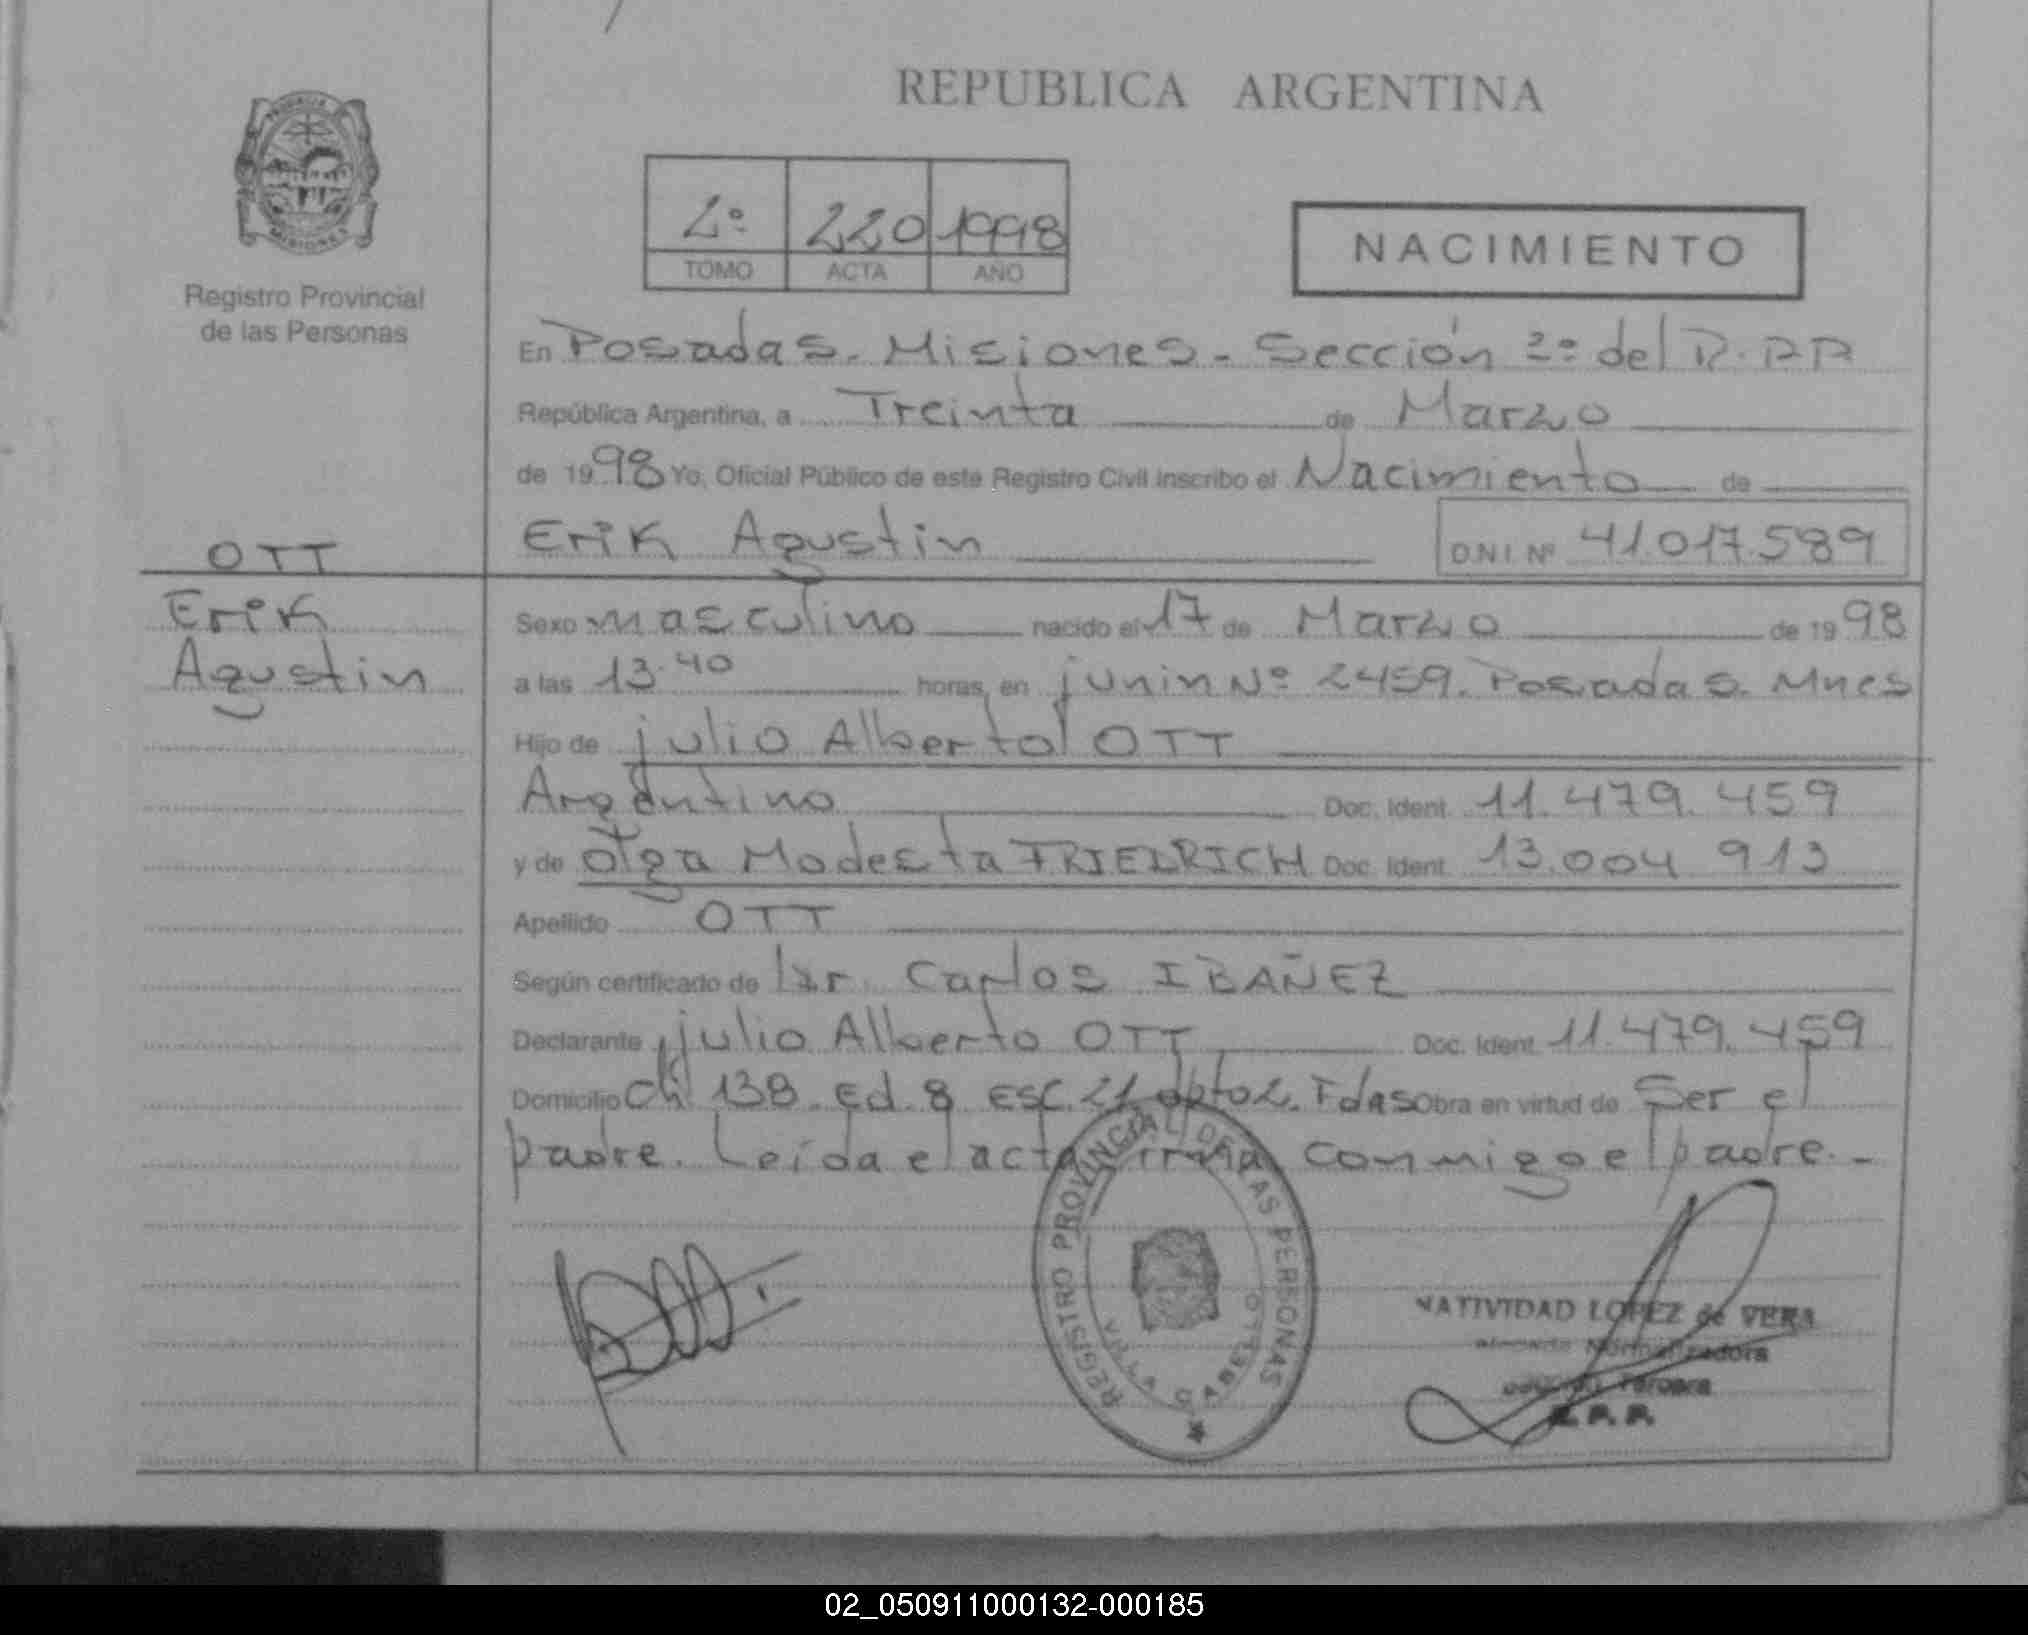 REPUBLICA ARGENTINA
PROVINCIA
MISIONES
Registro Provincial
de las Personas
2º 220 1998
TOMO ACTA AÑO
NACIMIENTO
En Posadas. Misiones. Sección 2º del R.P.P
República Argentina, a Treinta de Marzo
de 1998 Yo, Oficial Público de este Registro Civil inscribo el Nacimiento de
Erik Agustin D.N.I. Nº 41.017.589
OTT
Erik
Agustin
Sexo masculino nacido el 17 de Marzo de 1998
a las 13.40 horas, en junin Nº 2459. Posadas. Mnes
Hijo de julio Alberto OTT
Argentino Doc. Ident. 11.479.459
y de Olga Modesta FRIEDRICH Doc. Ident. 13.004 913
Apellido OTT
Según certificado de Dr. Carlos IBAÑEZ
Declarante julio Alberto OTT Doc. Ident. 11.479.459
Domicilio Ch 138. Ed. 8 Esc. 21 dpto 2. Pdas Obra en virtud de Ser el
padre. Leída el acta firma conmigo el padre.-
REGISTRO PROVINCIAL DE LAS PERSONAS
VILLA CABELLO
NATIVIDAD LOPEZ de VERA
Normalizadora
Tercera
R.P.P.
02_050911000132-000185